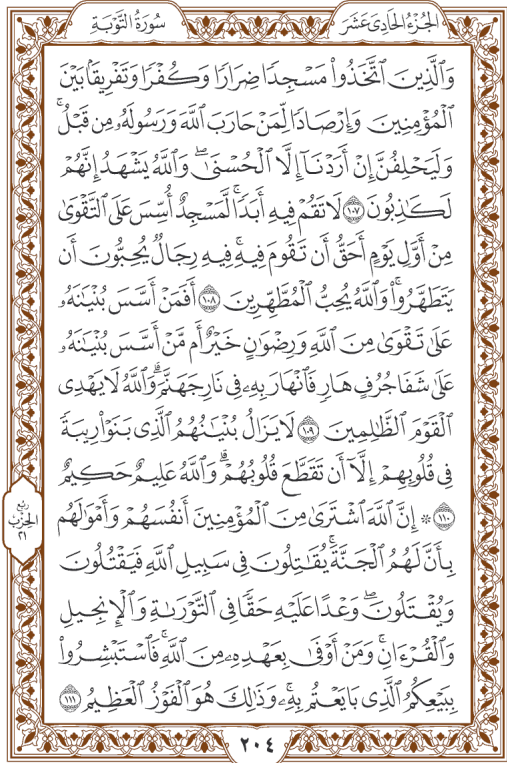 الجُزْءُ الحَادِي عَشَرَ
سُورَةُ التَّوْبَةِ
وَٱلَّذِينَ ٱتَّخَذُوا۟ مَسْجِدًا ضِرَارًا وَكُفْرًا وَتَفْرِيقًۢا بَيْنَ
ٱلْمُؤْمِنِينَ وَإِرْصَادًا لِّمَنْ حَارَبَ ٱللَّهَ وَرَسُولَهُۥ مِن قَبْلُ ۚ
وَلَيَحْلِفُنَّ إِنْ أَرَدْنَآ إِلَّا ٱلْحُسْنَىٰ ۖ وَٱللَّهُ يَشْهَدُ إِنَّهُمْ
لَكَـٰذِبُونَ ١٠٧ لَا تَقُمْ فِيهِ أَبَدًا ۚ لَّمَسْجِدٌ أُسِّسَ عَلَى ٱلتَّقْوَىٰ
مِنْ أَوَّلِ يَوْمٍ أَحَقُّ أَن تَقُومَ فِيهِ ۚ فِيهِ رِجَالٌ يُحِبُّونَ أَن
يَتَطَهَّرُوا۟ ۚ وَٱللَّهُ يُحِبُّ ٱلْمُطَّهِّرِينَ ١٠٨ أَفَمَنْ أَسَّسَ بُنْيَـٰنَهُۥ
عَلَىٰ تَقْوَىٰ مِنَ ٱللَّهِ وَرِضْوَٰنٍ خَيْرٌ أَم مَّنْ أَسَّسَ بُنْيَـٰنَهُۥ
عَلَىٰ شَفَا جُرُفٍ هَارٍ فَٱنْهَارَ بِهِۦ فِى نَارِ جَهَنَّمَ ۗ وَٱللَّهُ لَا يَهْدِى
ٱلْقَوْمَ ٱلظَّـٰلِمِينَ ١٠٩ لَا يَزَالُ بُنْيَـٰنُهُمُ ٱلَّذِى بَنَوْا۟ رِيبَةً
فِى قُلُوبِهِمْ إِلَّآ أَن تَقَطَّعَ قُلُوبُهُمْ ۗ وَٱللَّهُ عَلِيمٌ حَكِيمٌ
١١٠ ۞ إِنَّ ٱللَّهَ ٱشْتَرَىٰ مِنَ ٱلْمُؤْمِنِينَ أَنفُسَهُمْ وَأَمْوَٰلَهُم
بِأَنَّ لَهُمُ ٱلْجَنَّةَ ۚ يُقَـٰتِلُونَ فِى سَبِيلِ ٱللَّهِ فَيَقْتُلُونَ
وَيُقْتَلُونَ ۖ وَعْدًا عَلَيْهِ حَقًّا فِى ٱلتَّوْرَىٰةِ وَٱلْإِنجِيلِ
وَٱلْقُرْءَانِ ۚ وَمَنْ أَوْفَىٰ بِعَهْدِهِۦ مِنَ ٱللَّهِ ۚ فَٱسْتَبْشِرُوا۟
بِبَيْعِكُمُ ٱلَّذِى بَايَعْتُم بِهِۦ ۚ وَذَٰلِكَ هُوَ ٱلْفَوْزُ ٱلْعَظِيمُ ١١١
ربع
الحزب
٢١
٢٠٤